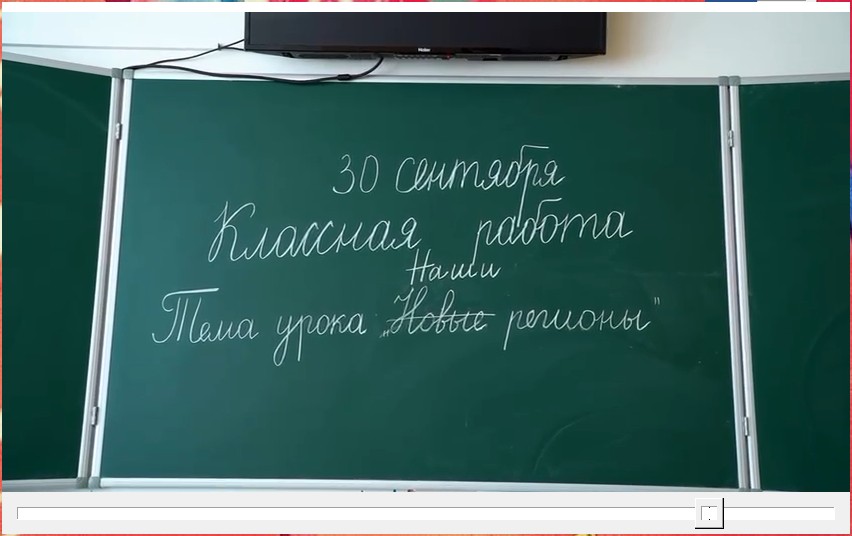 Haier
30 сентября
Классная работа
Наши
Тема урока „Новые регионы"